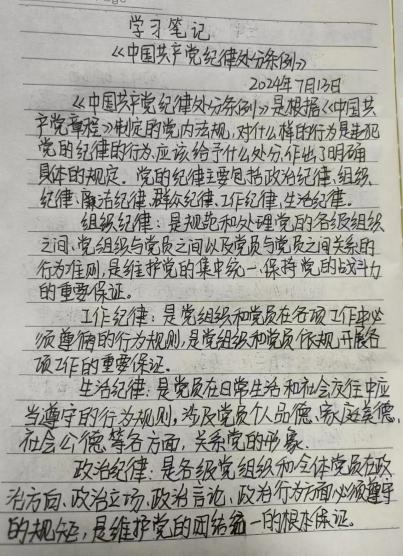 学习笔记
《中国共产党纪律处分条例》
2024年7月13日
《中国共产党纪律处分条例》是根据《中国共
产党章程》制定的党内法规,对什么样的行为是违犯
党的纪律的行为、应该给予什么处分,作出了明确
具体的规定。党的纪律主要包括政治纪律、组织
纪律、廉洁纪律、群众纪律、工作纪律、生活纪律。
组织纪律:是规范和处理党的各级组织
之间、党组织与党员之间以及党员与党员之间关系的
行为准则,是维护党的集中统一、保持党的战斗力
的重要保证。
工作纪律:是党组织和党员在各项工作中必
须遵循的行为规则,是党组织和党员依规开展各
项工作的重要保证。
生活纪律:是党员在日常生活和社会交往中应
当遵守的行为规则,涉及党员个人品德、家庭美德、
社会公德等各方面,关系党的形象。
政治纪律:是各级党组织和全体党员在政
治方向、政治立场、政治言论、政治行为方面必须遵守
的规矩,是维护党的团结统一的根本保证。